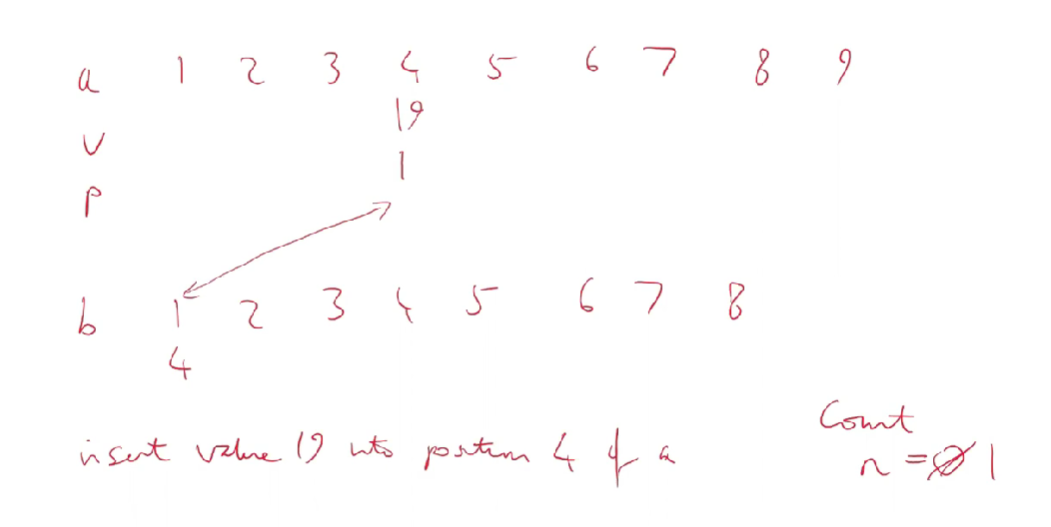 a 1 2 3 4 5 6 7 8 9
v 19
p 1
b 1 2 3 4 5 6 7 8
4
insert value 19 into position 4 of a
Count
n = 0 1